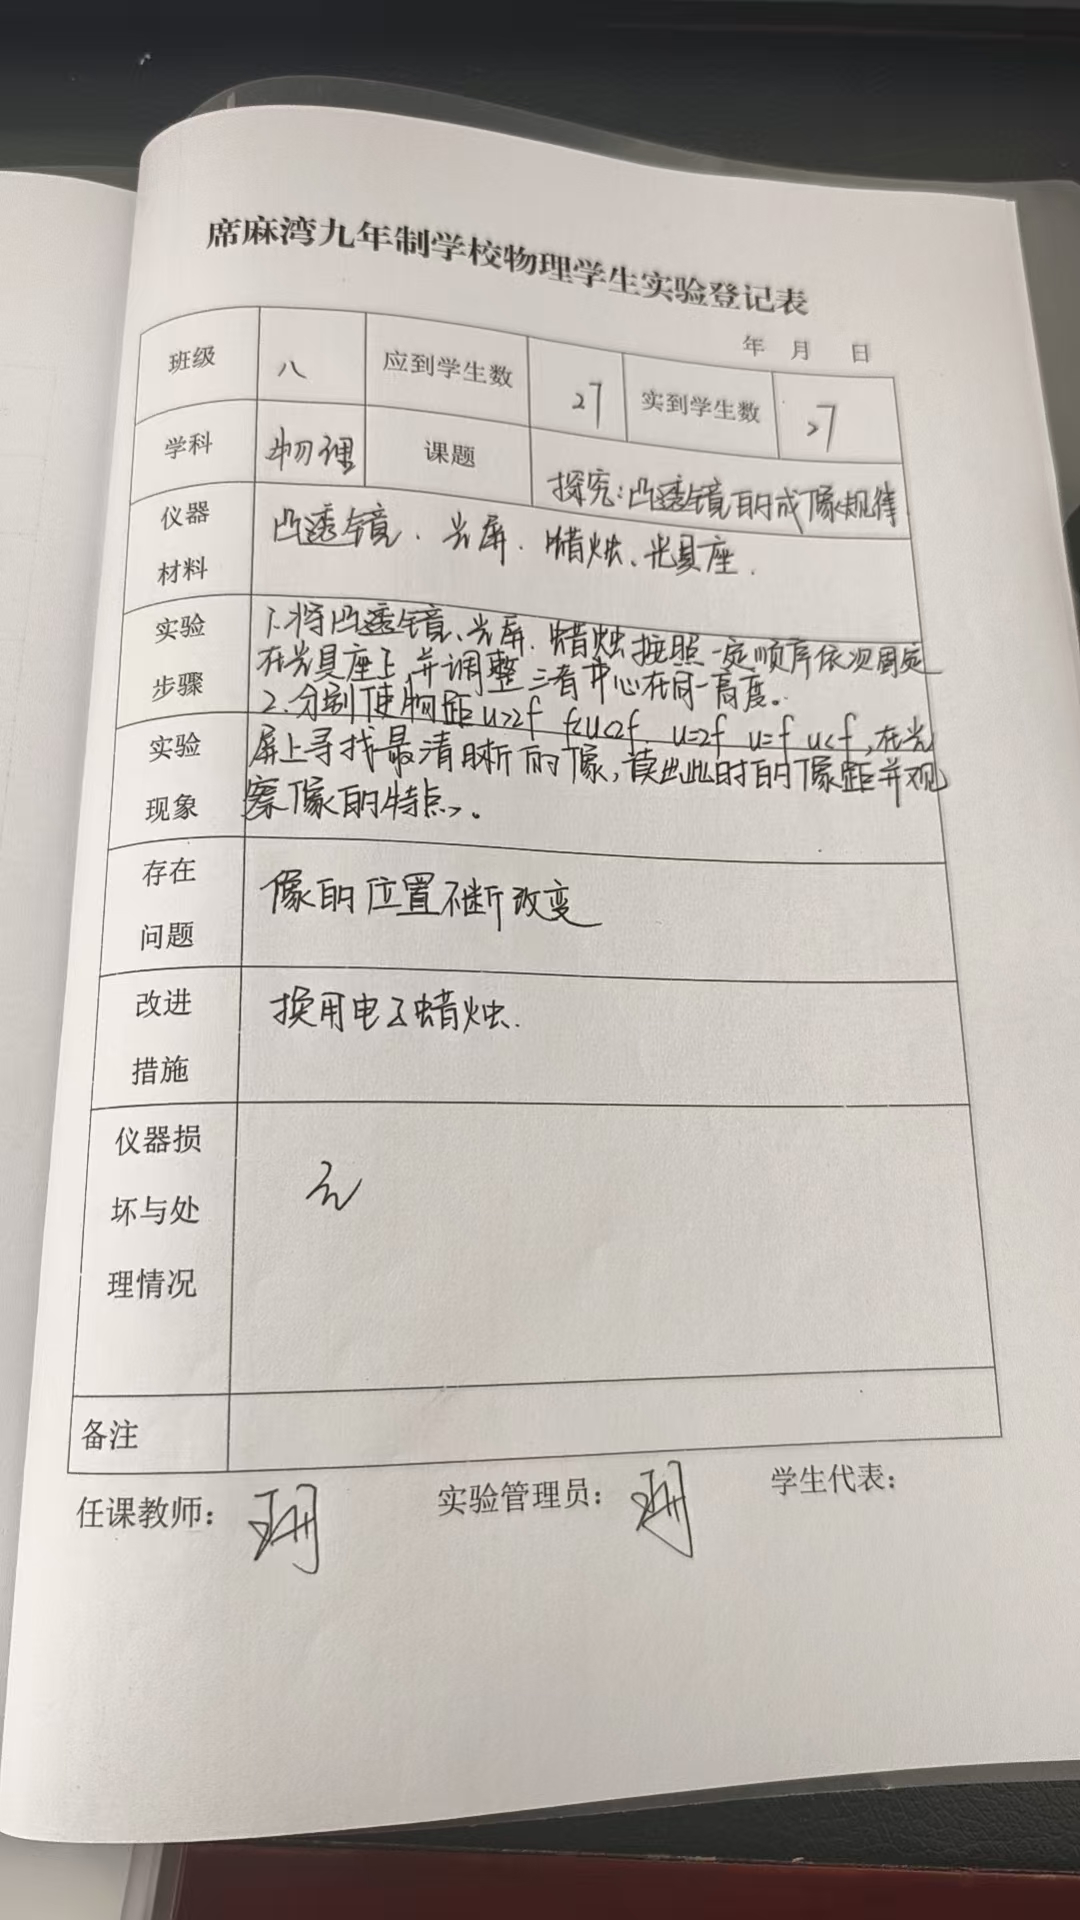 席麻湾九年制学校物理学生实验登记表
年 月 日
班级 八 应到学生数 27 实到学生数 27
学科 物理 课题 探究：凸透镜的成像规律
仪器材料 凸透镜、光屏、蜡烛、光具座.
实验步骤
1.将凸透镜、光屏、蜡烛按照一定顺序依次固定
在光具座上,并调整三者中心在同一高度。
2.分别使物距u>2f f<u<2f、u=2f u=f u<f,在光
实验现象
屏上寻找最清晰的像,读出此时的像距并观
察像的特点。
存在问题 像的位置不断改变
改进措施 换用电子蜡烛.
仪器损坏与处理情况 无
备注
任课教师： 实验管理员： 学生代表：